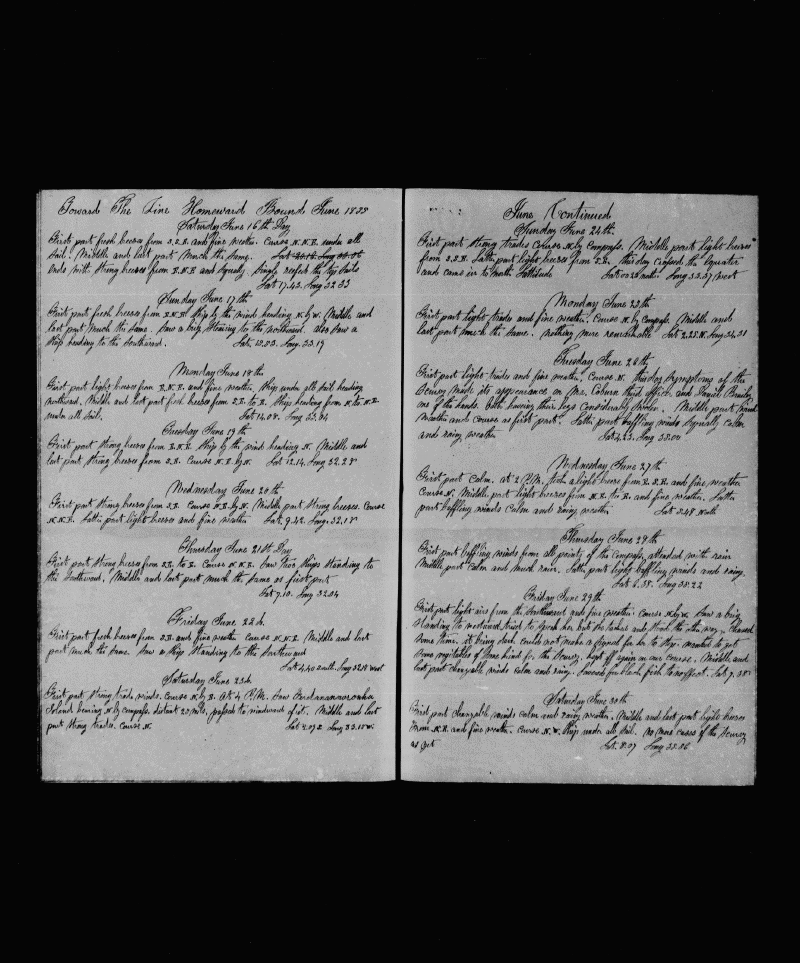 Toward The Line Homeward Bound June 1838
Saturday June 16th Day
First part fresh breeses from S.S.E. and fine weather. Course N.N.E. under all
sail. Middle and last part much the same.
ends with strong breeses from E.N.E and squaly. Single reeft the top sails
Lat 17.43. Long 32.33
Sunday June 17th
First part fresh breeses from E.N.E ship by the wind heading N by W. Middle and
last part much the same. Saw a brig steering to the northward. also saw a
ship heading to the southward. Lat. 15.53. Long. 33.19
Monday June 18th
First part light breeses from E.N.E. and fine weather. Ship under all sail heading
northward. Middle and last part fresh breeses from S.E. to E. Ship heading from N. to N.E.
under all sail. Lat 14.08. Long 33.34
Tuesday June 19th
First part strong breeses from E.N.E. ship by the wind heading N. Middle and
last part strong breeses from S.E. Course N.E. by N. Lat 12.14. Long 32.28
Wednesday June 20th
First part strong breeses from S.E. Course N.E. by N. Middle part strong breeses. Course
N.N.E. Latter part light breeses and fine weather Lat. 9.42. Long. 32.18
Thursday June 21st Day
First part strong breeses from S.E. to E. Course N.N.E. Saw two ships standing to
the southward. Middle and last part much the same as first part
Lat 7.10. Long 32.04
Friday June 22d.
First part fresh breeses from S.E. and fine weather Course N.N.E. Middle and last
part much the same. Saw a ship standing to the southward
Lat 4.40 south. Long 32.14 west
Saturday June 23d.
First part strong trade winds. Course N by E. At 4 P.M. Saw
Island bearing N. by compass. distant 25 mls. passed to windward of it. Middle and last
part strong trades. Course N. Lat 2.07 S Long 33.15 W.
June Continued
Sunday June 24th.
First part strong trades Course N. by compass. Middle part light breeses
from S.S.E. Latter part light breese from S.E. this day crossed the Equater
and came in to North Lattitude Lat 0.28 north Long 33.37 west
Monday June 25th
First part light trades and fine weather. Course N. by Compass. Middle and
last part much the same. nothing more remarkable Lat 2.25 N. Long 34.31
Tuesday June 26th
First part light trades and fine weather, Course N. this day symptoms of the
Scurvy made its appearance on Mr. Coburn third officer and Daniel
one of the hands. Both having their legs considerably swolen. Middle part wind
weather and course as first part. Latter part baffling winds squaly calm
and rainy weather Lat 4.23. Long 35.00
Wednesday June 27th
First part Calm. at 2 P.M. took a light breese from E.S.E. and fine weather
Course N. Middle part light breeses from N.E. to E. and fine weather. Latter
part baffling winds calm and rainy weather Lat 5.48 North
Thursday June 28th
First part baffling winds from all points of the compass, attended with rain
Middle part calm and much rain. Latter part light baffling winds and rainy.
Lat 6.38. Long 35.22
Friday June 29th
First part light airs from the southward and fine weather. Course N by W. Saw a brig
standing to northward. tried to speak her but she tacked and stood the other way. Chased
some time. it being dark could not make a signal for her to stop. wanted to get
some vegitables of some kind for the scurvy. kept off again on our course. Middle and
last part changeable winds calm and rainy. Lat. 7.35
Saturday June 30th
First part changeable winds calm and rainy weather. Middle and last part light breeses
from N.E. and fine weather. Course N.W. Ship under all sail. no more cases of the scurvy
as yet Lat. 8.07 Long 35.56